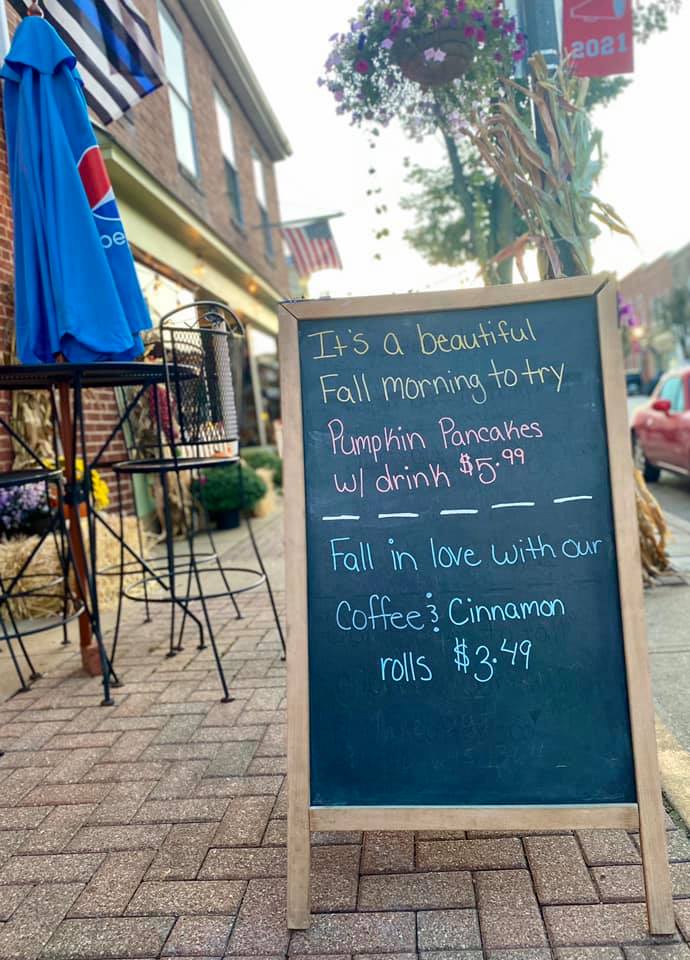 2021
pe
It's a beautiful
Fall morning to try
Pumpkin Pancakes
w/ drink $5.99
Fall in love with our
Coffee & Cinnamon
rolls $3.49